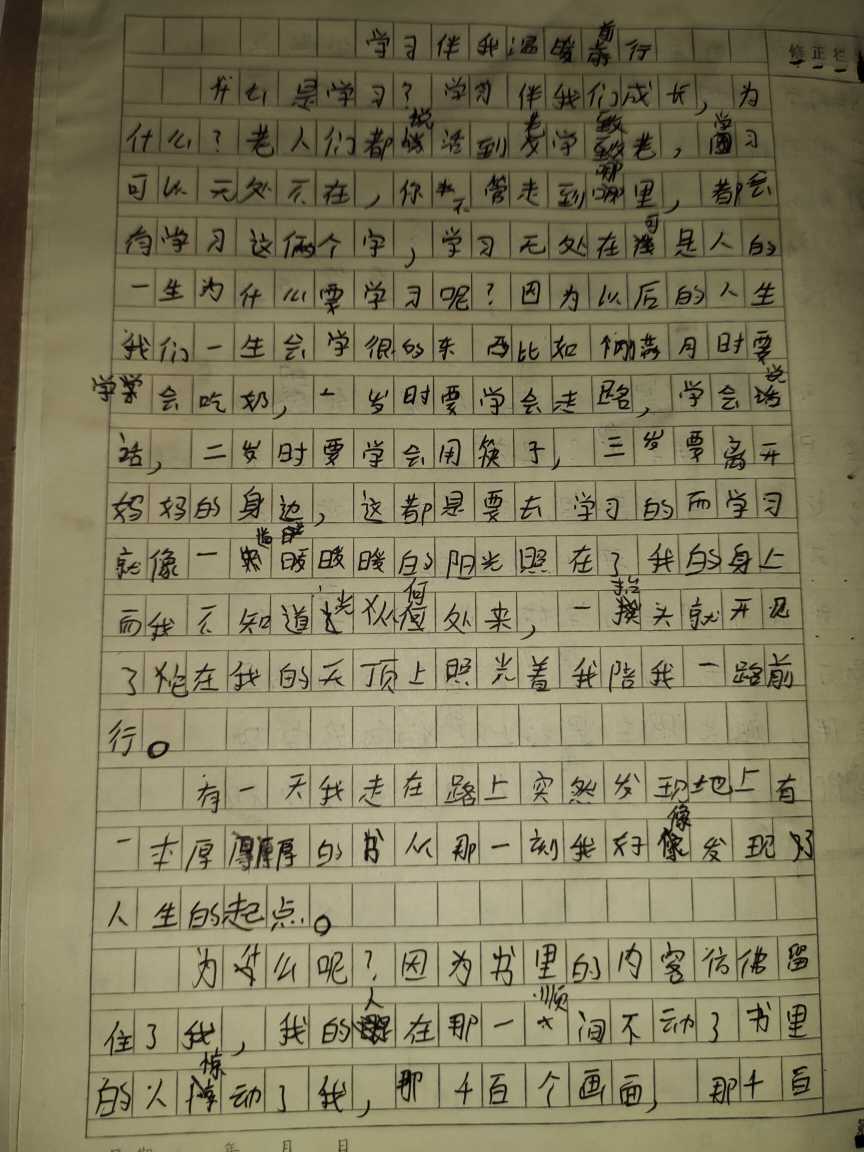 学习伴我温暖前行
修正栏
什么是学习？学习伴我们成长，为
什么？老人们都说活到老学到老，学习
可以无处不在，你不管走到哪里，都会
有学习这俩个字，学习无处在可是人的
一生为什么要学习呢？因为以后的人生
我们一生会学很的东西比如满月时要
学会吃奶，一岁时要学会走路，学会说
话，二岁时要学会用筷子，三岁要离开
妈妈的身边，这都是要去学习的而学习
就像一道暖暖的阳光照在了我的身上
而我不知道光从何处来，一抬头就开见
了他在我的天顶上照光着我陪我一路前
行。
有一天我走在路上突然发现地上有
一本厚厚的书从那一刻我好像发现了
人生的起点。
为什么呢？因为书里的内容仿佛留
住了我，我的人在那一顺间不动了书里
的人惊动了我，那千百个画面，那千百
年 月 日